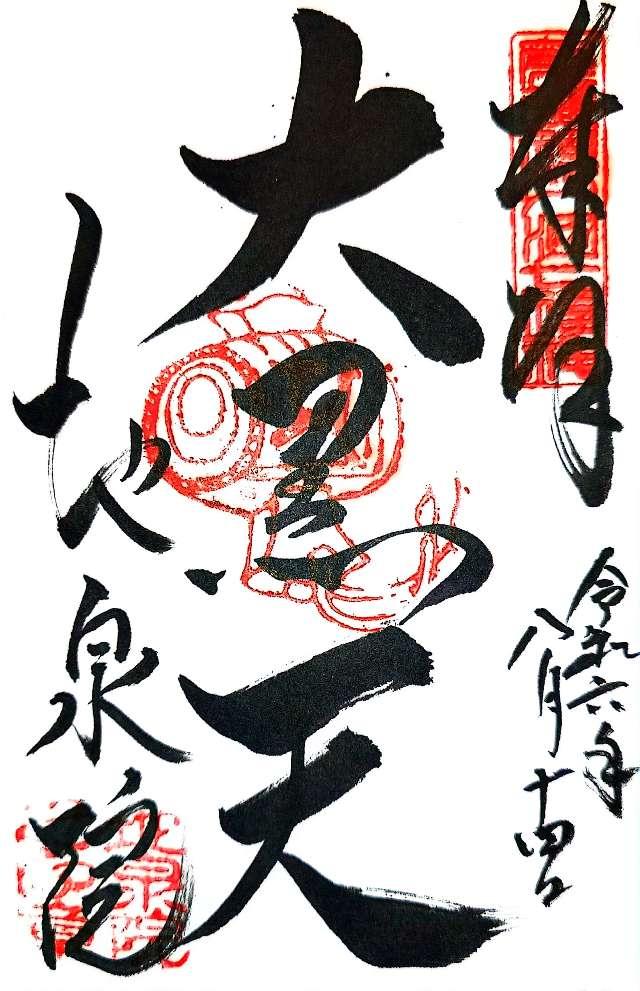 奉拝
令和六年
八月十四日
大黒天
地泉院